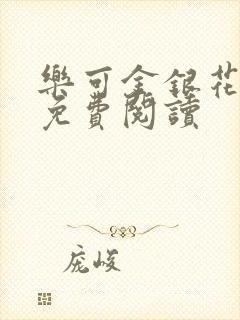 樂可金銀花
免費閱讀
庞峻